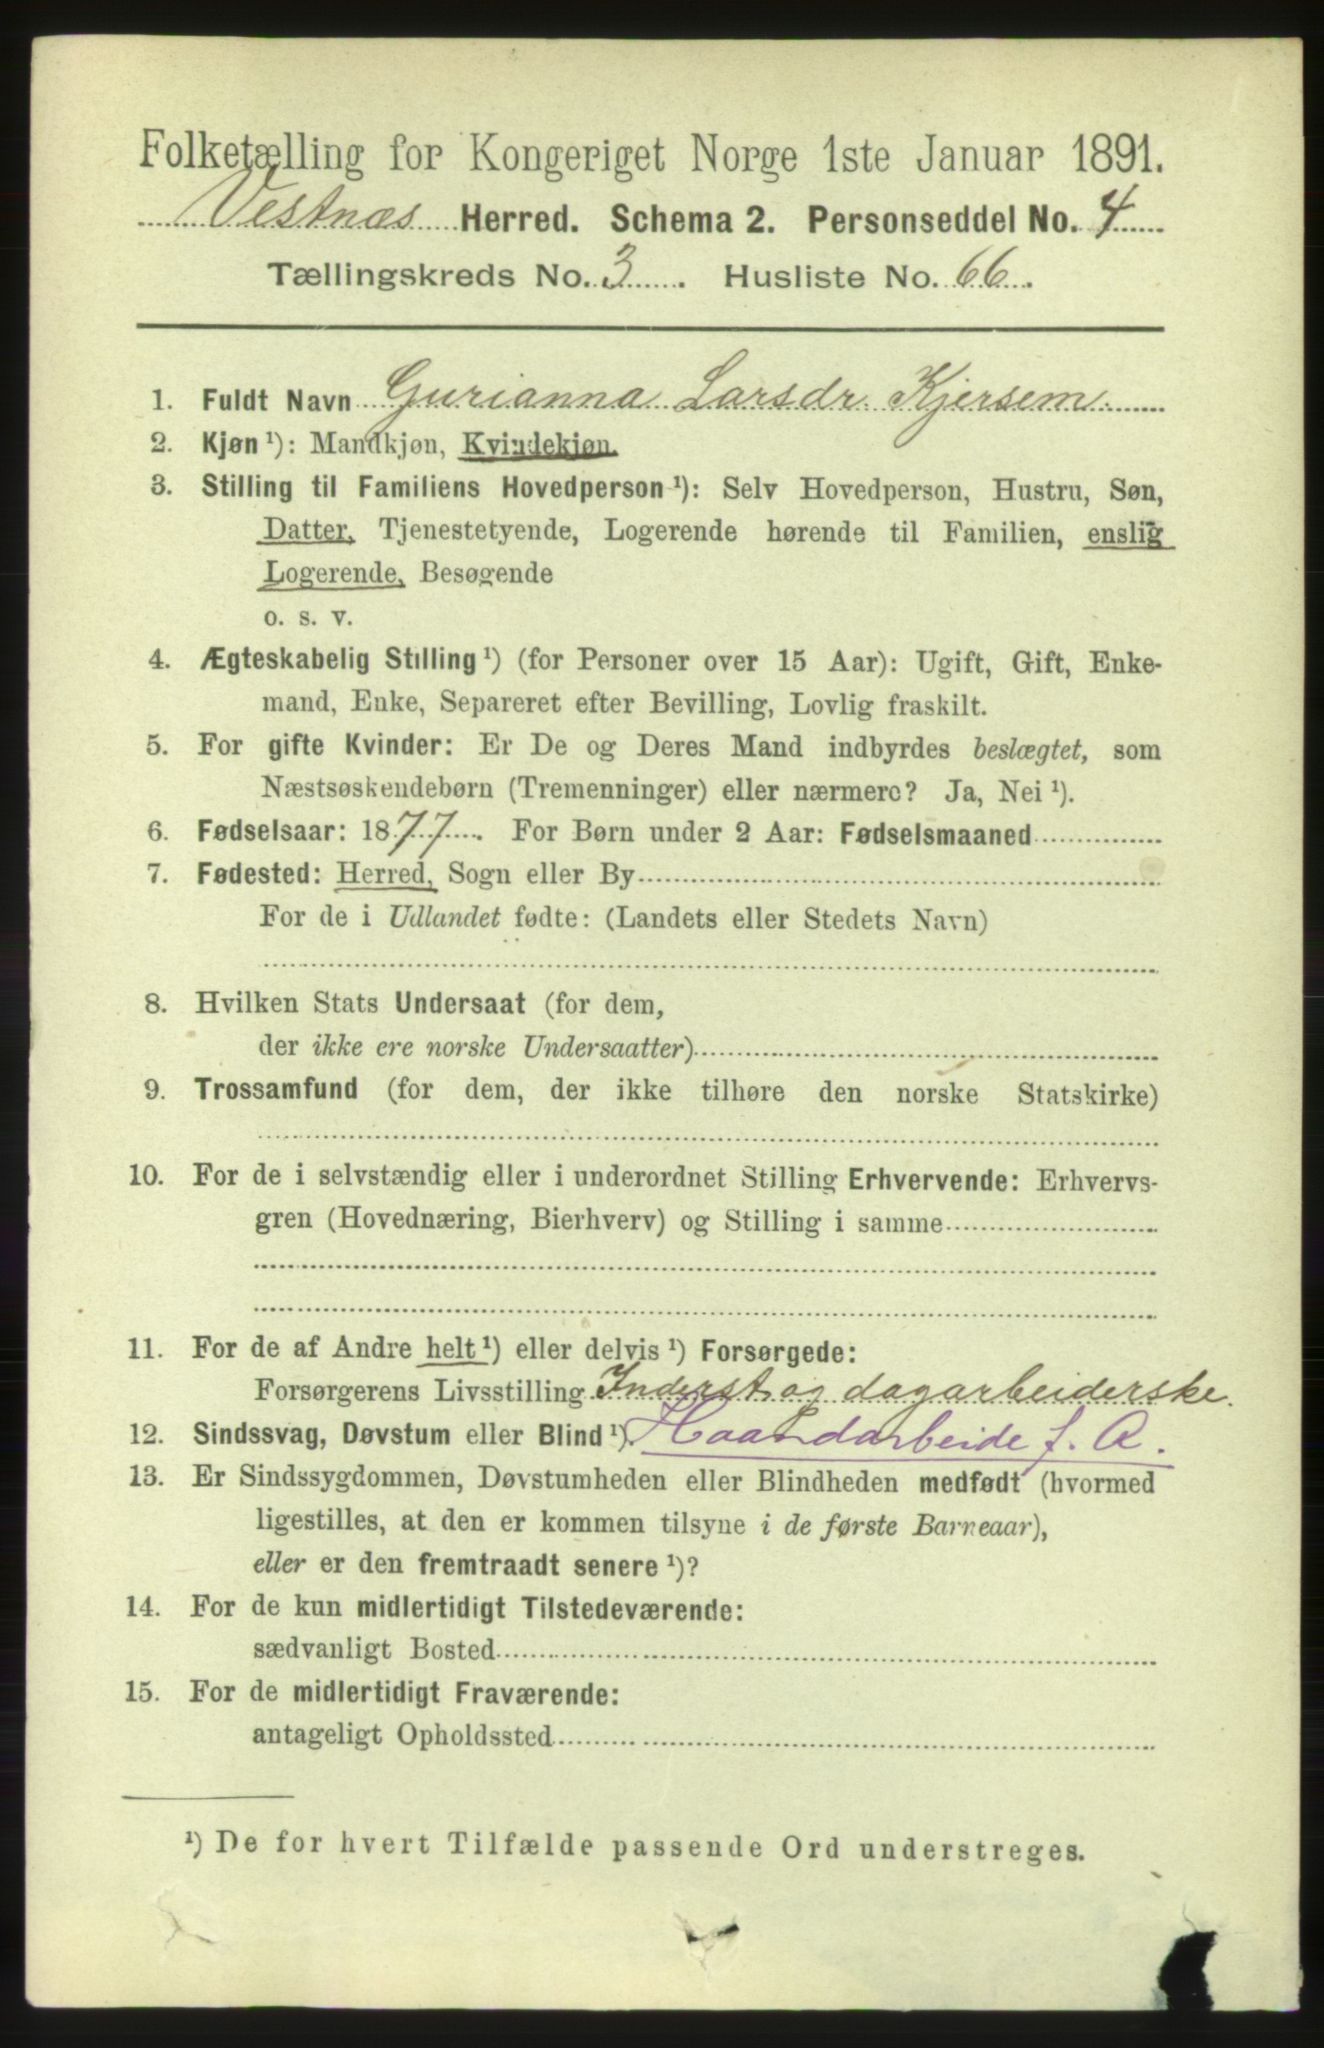 Folketælling for Kongeriget Norge 1ste Januar 1891.
Vestnæs Herred. Schema 2. Personseddel No. 4
Tællingskreds No. 3. Husliste No. 66.
1. Fuldt Navn Gurianna Larsdr. Kjersem.
2. Kjøn ¹): Mandkjøn, Kvindekjøn.
3. Stilling til Familiens Hovedperson ¹): Selv Hovedperson, Hustru, Søn,
Datter, Tjenestetyende, Logerende hørende til Familien, enslig
Logerende, Besøgende
o. s. v.
4. Ægteskabelig Stilling ¹) (for Personer over 15 Aar): Ugift, Gift, Enke-
mand, Enke, Separeret efter Bevilling, Lovlig fraskilt.
5. For gifte Kvinder: Er De og Deres Mand indbyrdes beslægtet, som
Næstsøskendebørn (Tremenninger) eller nærmere? Ja, Nei ¹).
6. Fødselsaar: 1877. For Børn under 2 Aar: Fødselsmaaned
7. Fødested: Herred, Sogn eller By
For de i Udlandet fødte: (Landets eller Stedets Navn)
8. Hvilken Stats Undersaat (for dem,
der ikke ere norske Undersaatter)
9. Trossamfund (for dem, der ikke tilhøre den norske Statskirke)
10. For de i selvstændig eller i underordnet Stilling Erhvervende: Erhvervs-
gren (Hovednæring, Bierhverv) og Stilling i samme
11. For de af Andre helt ¹) eller delvis ¹) Forsørgede:
Forsørgerens Livsstilling Inderst og dagarbeiderske.
12. Sindssvag, Døvstum eller Blind ¹). Haandarbeide f. A.
13. Er Sindssygdommen, Døvstumheden eller Blindheden medfødt (hvormed
ligestilles, at den er kommen tilsyne i de første Barneaar),
eller er den fremtraadt senere ¹)?
14. For de kun midlertidigt Tilstedeværende:
sædvanligt Bosted
15. For de midlertidigt Fraværende:
antageligt Opholdssted
¹) De for hvert Tilfælde passende Ord understreges.